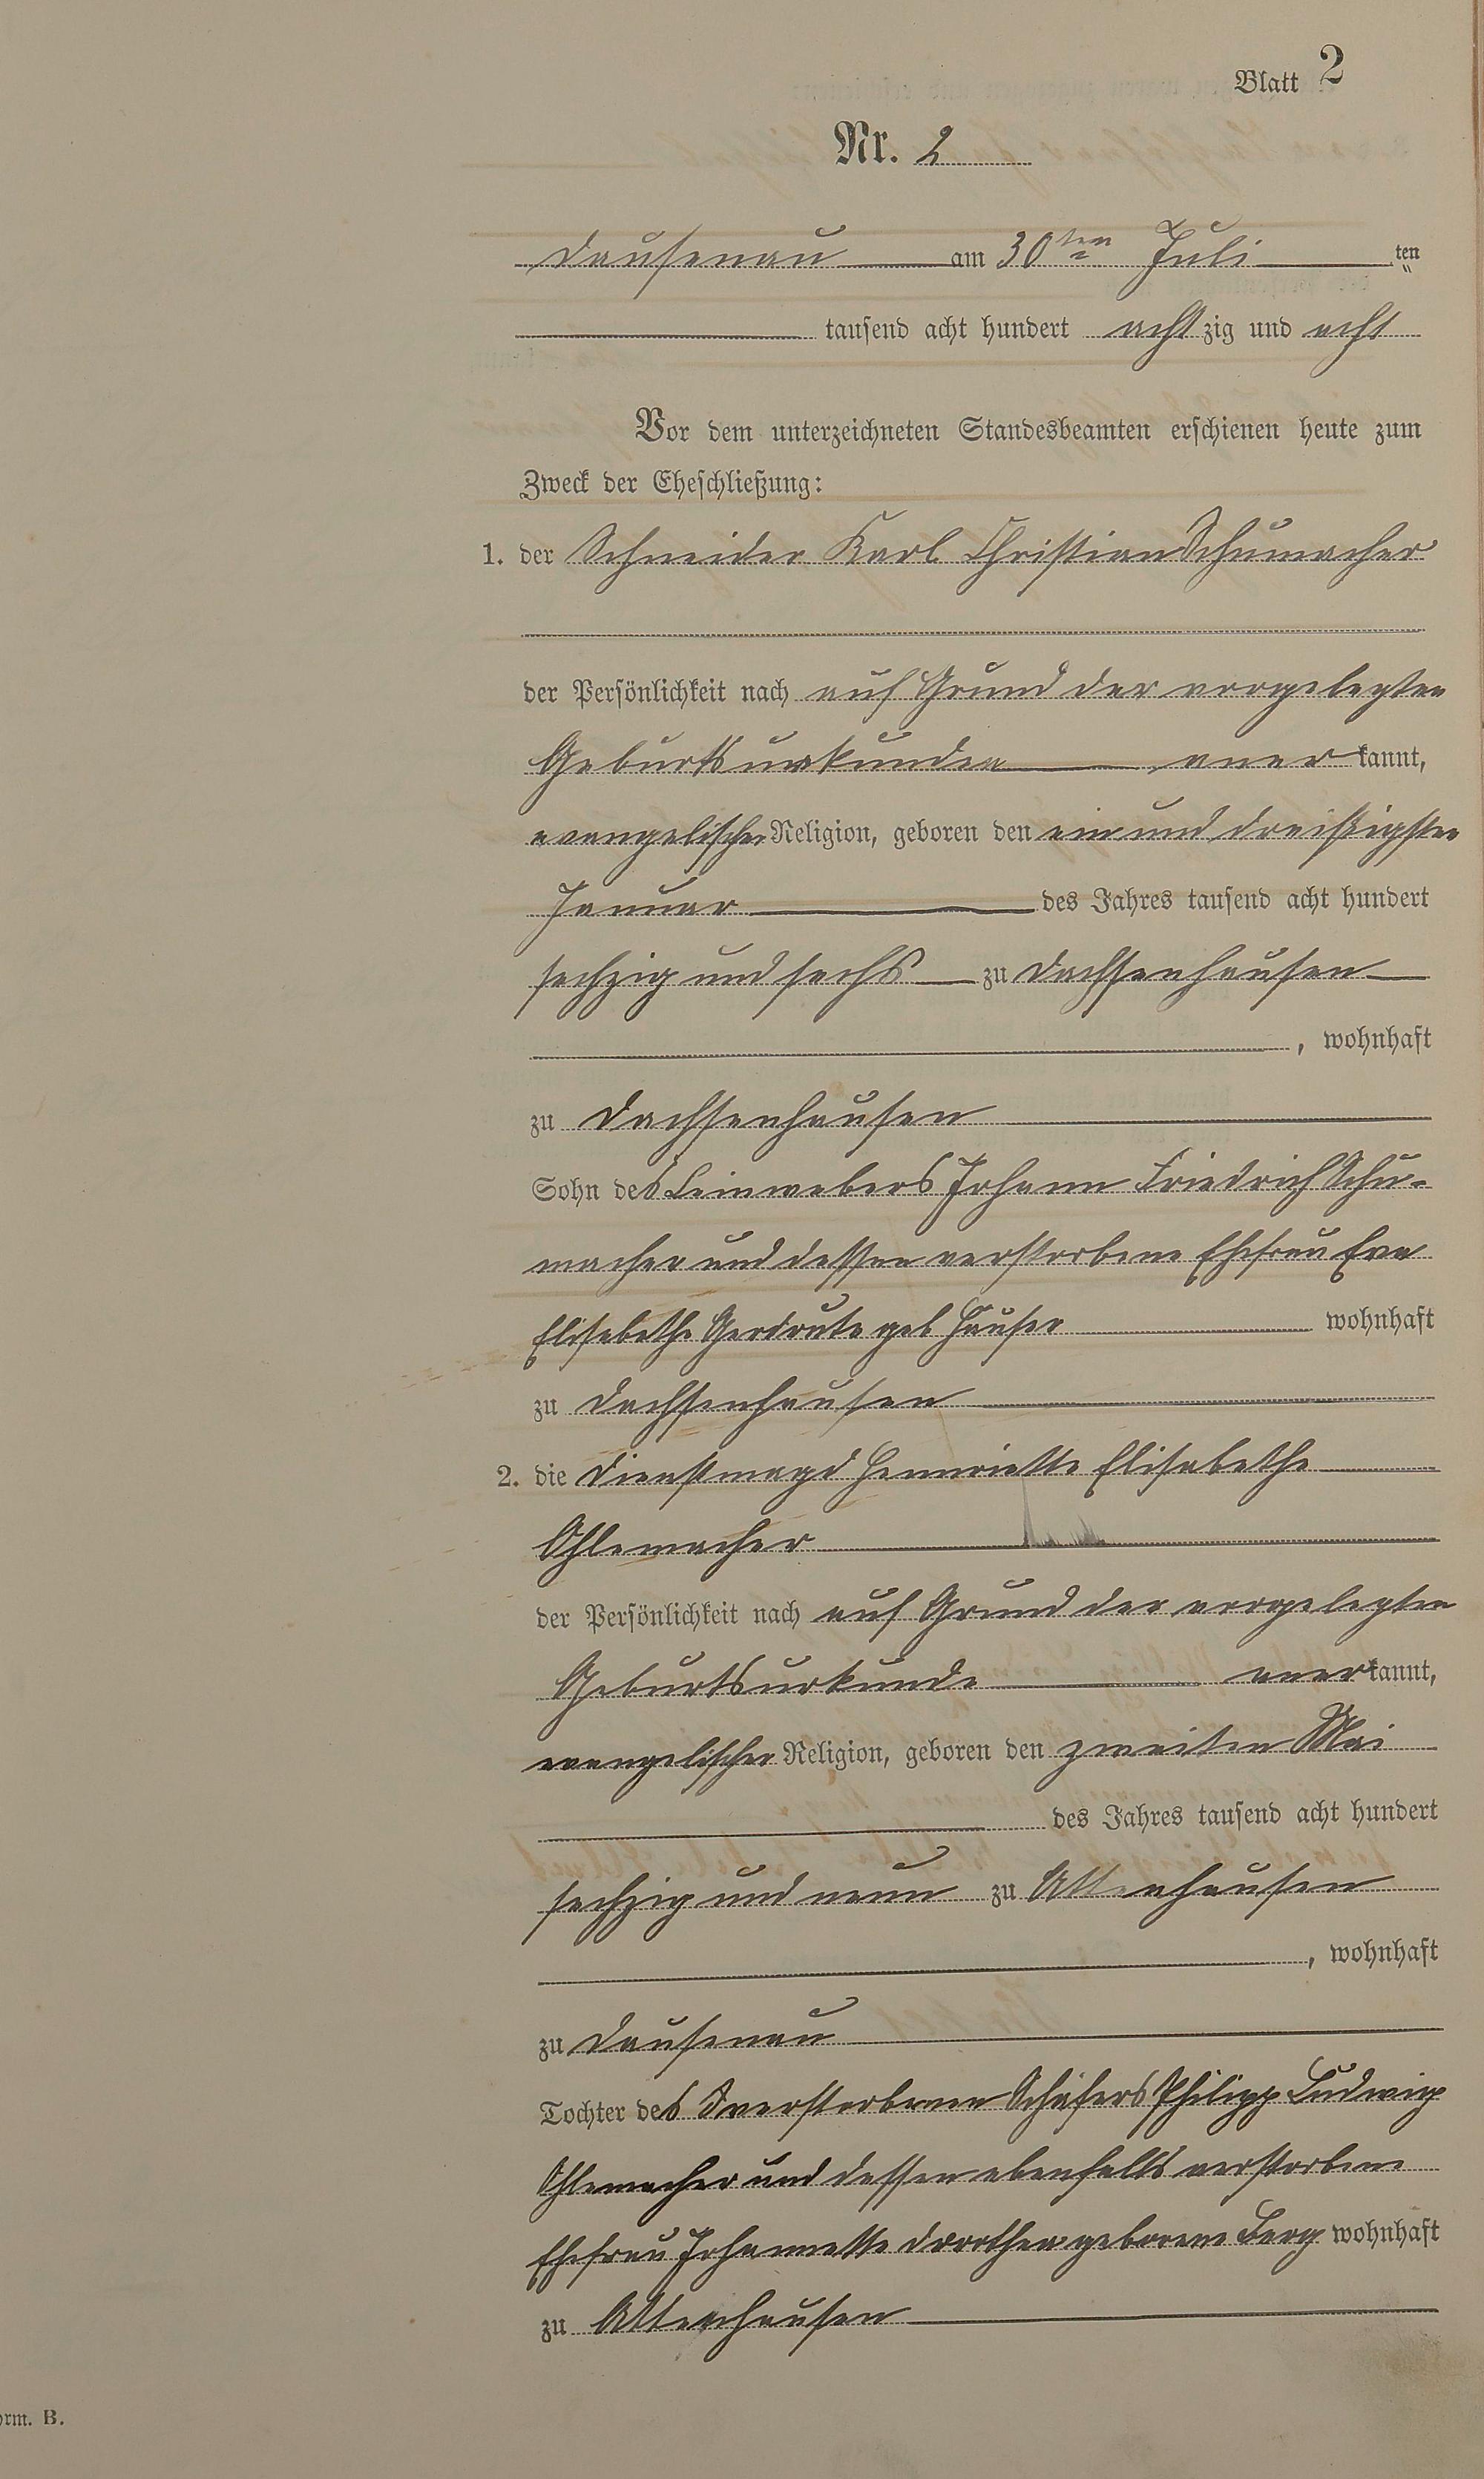 Blatt 2
Nr. 2
Dausenau am 30ten Juli ten
tausend acht hundert achtzig und acht
Vor dem unterzeichneten Standesbeamten erschienen heute zum
Zweck der Eheschließung:
1. der Schneider Karl Christian Schumacher
der Persönlichkeit nach auf Grund der vorgelegten
Geburtsurkunden anerkannt,
evangelischer Religion, geboren den ein und dreißigsten
Januar des Jahres tausend acht hundert
sechzig und sechs zu Dachsenhausen
, wohnhaft
zu Dachsenhausen
Sohn des Leinwebers Johann Friedrich Schu-
macher und dessen verstorbene Ehefrau Eva
Elisabethe Gerdrute geb Häuser wohnhaft
zu Dachsenhausen
2. die Dienstmagd Hennriette Elisabethe
Ohlemacher
der Persönlichkeit nach auf Grund der vorgelegten
Geburtsurkunde anerkannt,
evangelischer Religion, geboren den zweiten Mai
des Jahres tausend acht hundert
sechzig und neun zu Attenhausen
, wohnhaft
zu Dausenau
Tochter des verstorbenen Schäfers Philipp Ludwig
Ohlemacher und dessen ebenfalls verstorbene
Ehefrau Johannette Dorothea geborene Berg wohnhaft
zu Attenhausen
orm. B.